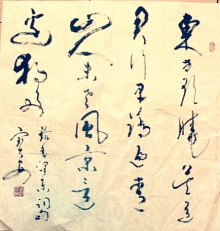 東方欲曉莫道
君行早踏遍青
山人未老風景這
邊獨好